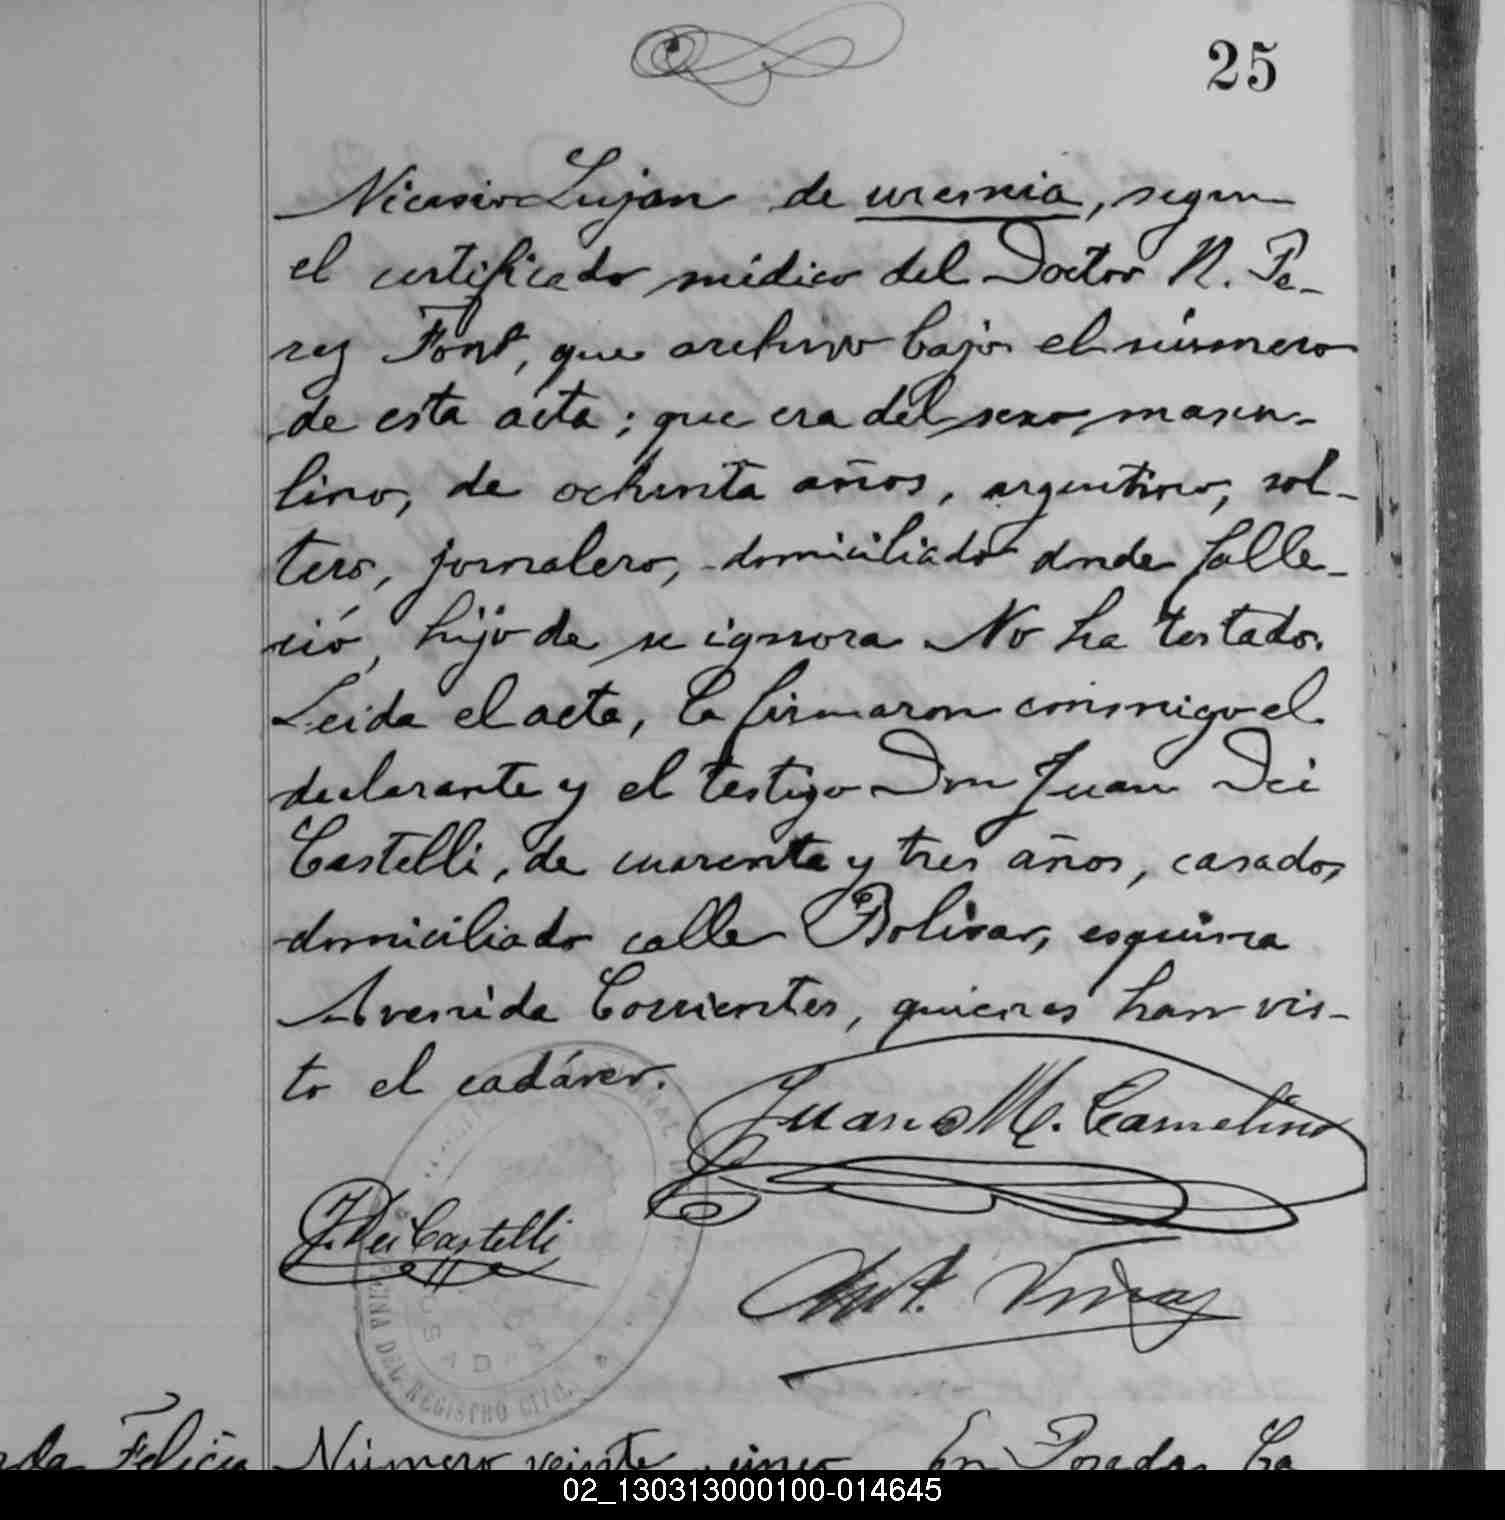 25
Nicasio Lujan de uremia, segun
el certificado médico del Doctor N. Pe-
rez Font, que archivo bajo el número
de esta acta; que era del sexo mascu-
lino, de ochenta años, argentino, sol-
tero, jornalero, domiciliado donde falle-
ció, hijo de se ignora No ha testado.
Leida el acta, la firmaron conmigo el
declarante y el testigo Don Juan Dei
Castelli, de cuarenta y tres años, casado,
domiciliado calle Bolivar, esquina
Avenida Corrientes, quienes han vis-
to el cadáver.
Juan M. Camelino
J. Dei Castelli
Ant.
OFICINA DEL REGISTRO CIVIL
POSADAS
da Felicia
Número veinte cinco En Posadas, Ca
02_130313000100-014645